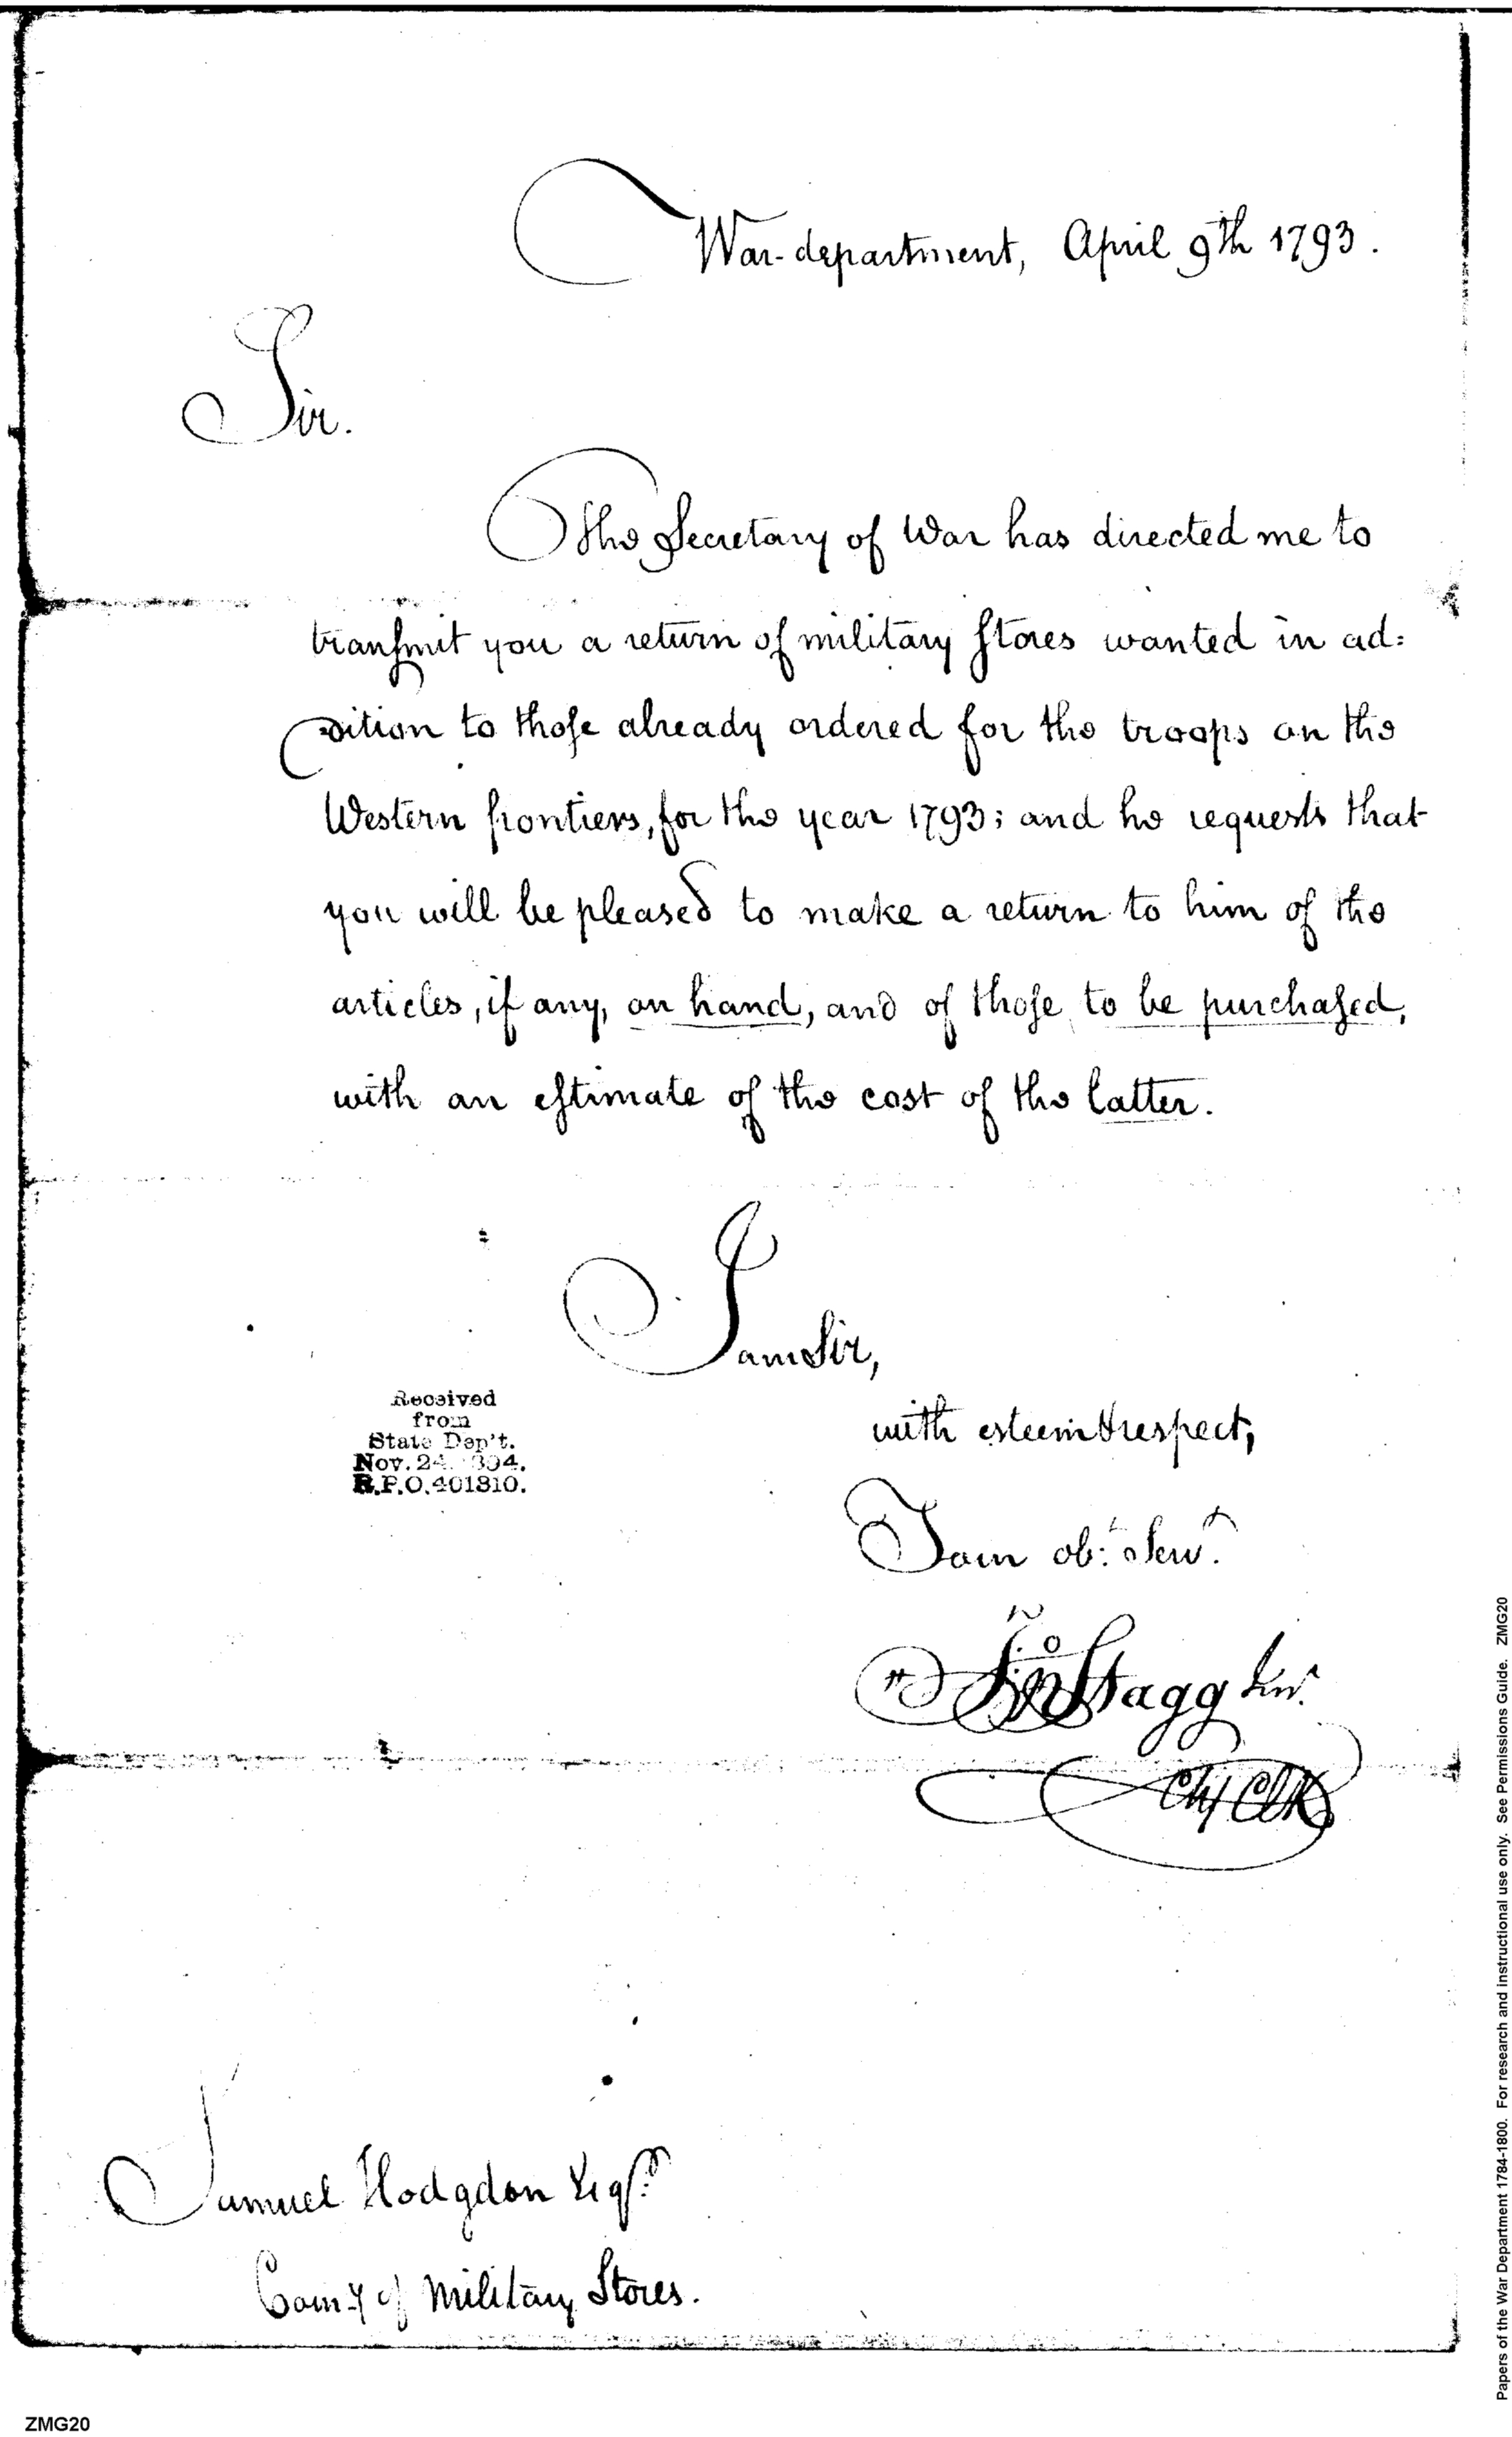 War-department, April 9th 1793.
Sir.
The Secretary of War has directed me to
transmit you a return of military stores wanted in ad:
dition to those already ordered for the troops on the
Western frontiers, for the year 1793; and he requests that
you will be pleased to make a return to him of the
articles, if any, on hand, and of those to be purchased,
with an estimate of the cost of the latter.
I am Sir,
with esteem & respect,
Received
from
State Dep't.
Nov. 24.
R.P.O. 401310.
I am ob:t Serv.t
Jno Stagg Junr.
Chf Clk
Samuel Hodgdon Esqr.
Comy of Military Stores.
ZMG20
Papers of the War Department 1784-1800. For research and instructional use only. See Permissions Guide. ZMG20